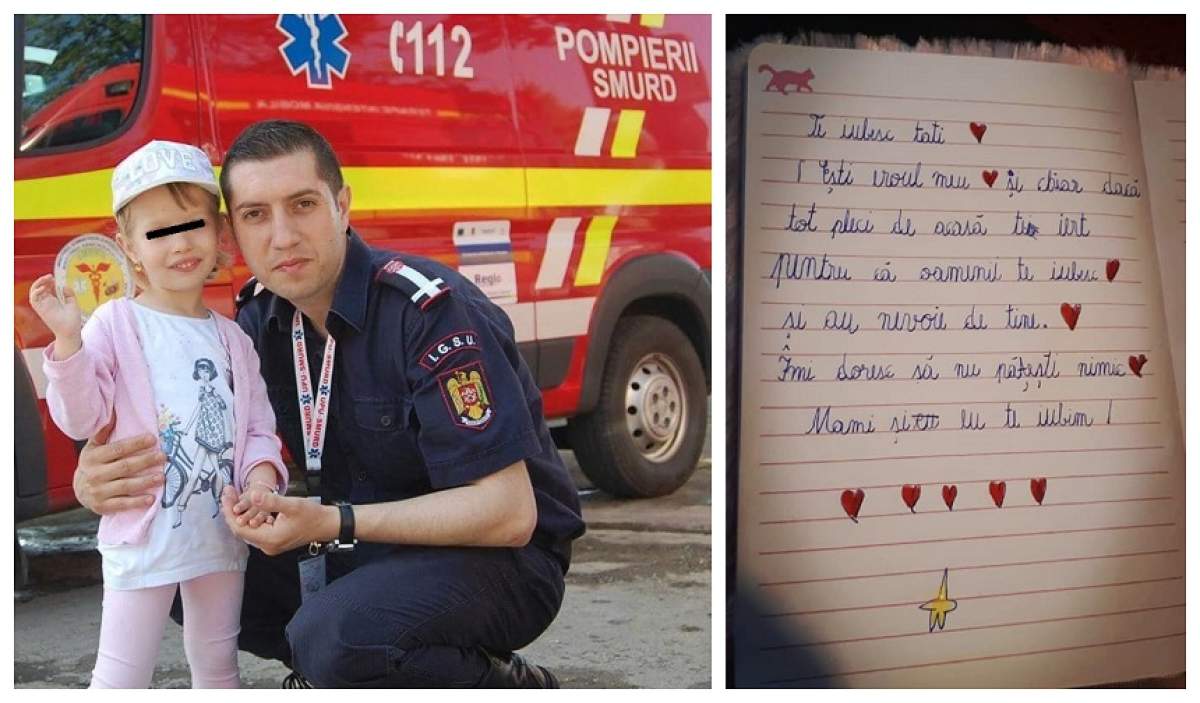 112
POMPIERII
SMURD
TERAPIE INTENSIVA MOBILA
LOVE
Regio
I.G.S.U.
UPU-SMURD
Te iubesc tati
Ești eroul meu și chiar dacă
tot pleci de acasă te iert
pentru că oamenii te iubesc
și au nevoie de tine.
Îmi doresc să nu pățești nimic
Mami și eu te iubim!